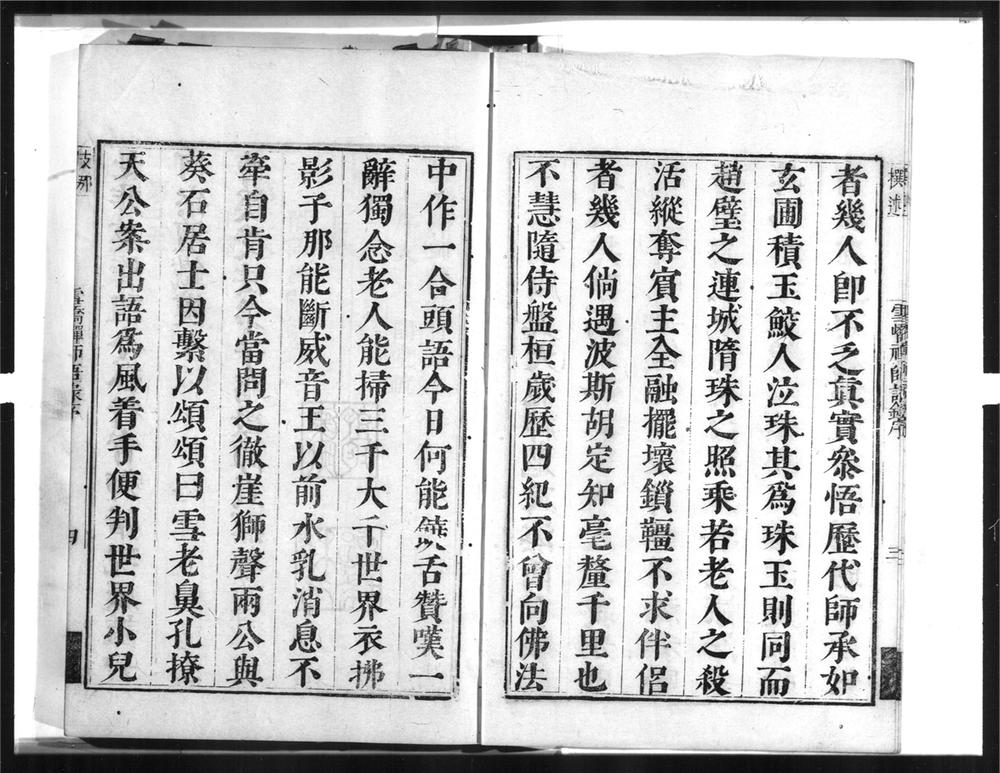 撰述
雪嶠禪師語錄序
三
者幾人卽不乏真實叅悟歷代師承如
玄圃積玉鮫人泣珠其爲珠玉則同而
趙璧之連城隋珠之照乘若老人之殺
活縱奪賓主全融擺壞鎖韁不求伴侶
者幾人倘遇波斯胡定知毫釐千里也
不慧隨侍盤桓歲歷四紀不曾向佛法
中作一合頭語今日何能饒舌贊嘆一
辭獨念老人能掃三千大千世界衣拂
影子那能斷威音王以前水乳消息不
牽自肯只今當問之徹崖獅聲兩公與
葵石居士因繫以頌頌曰雪老鼻孔撩
天公案出語爲風着手便判世界小兒
支那
四